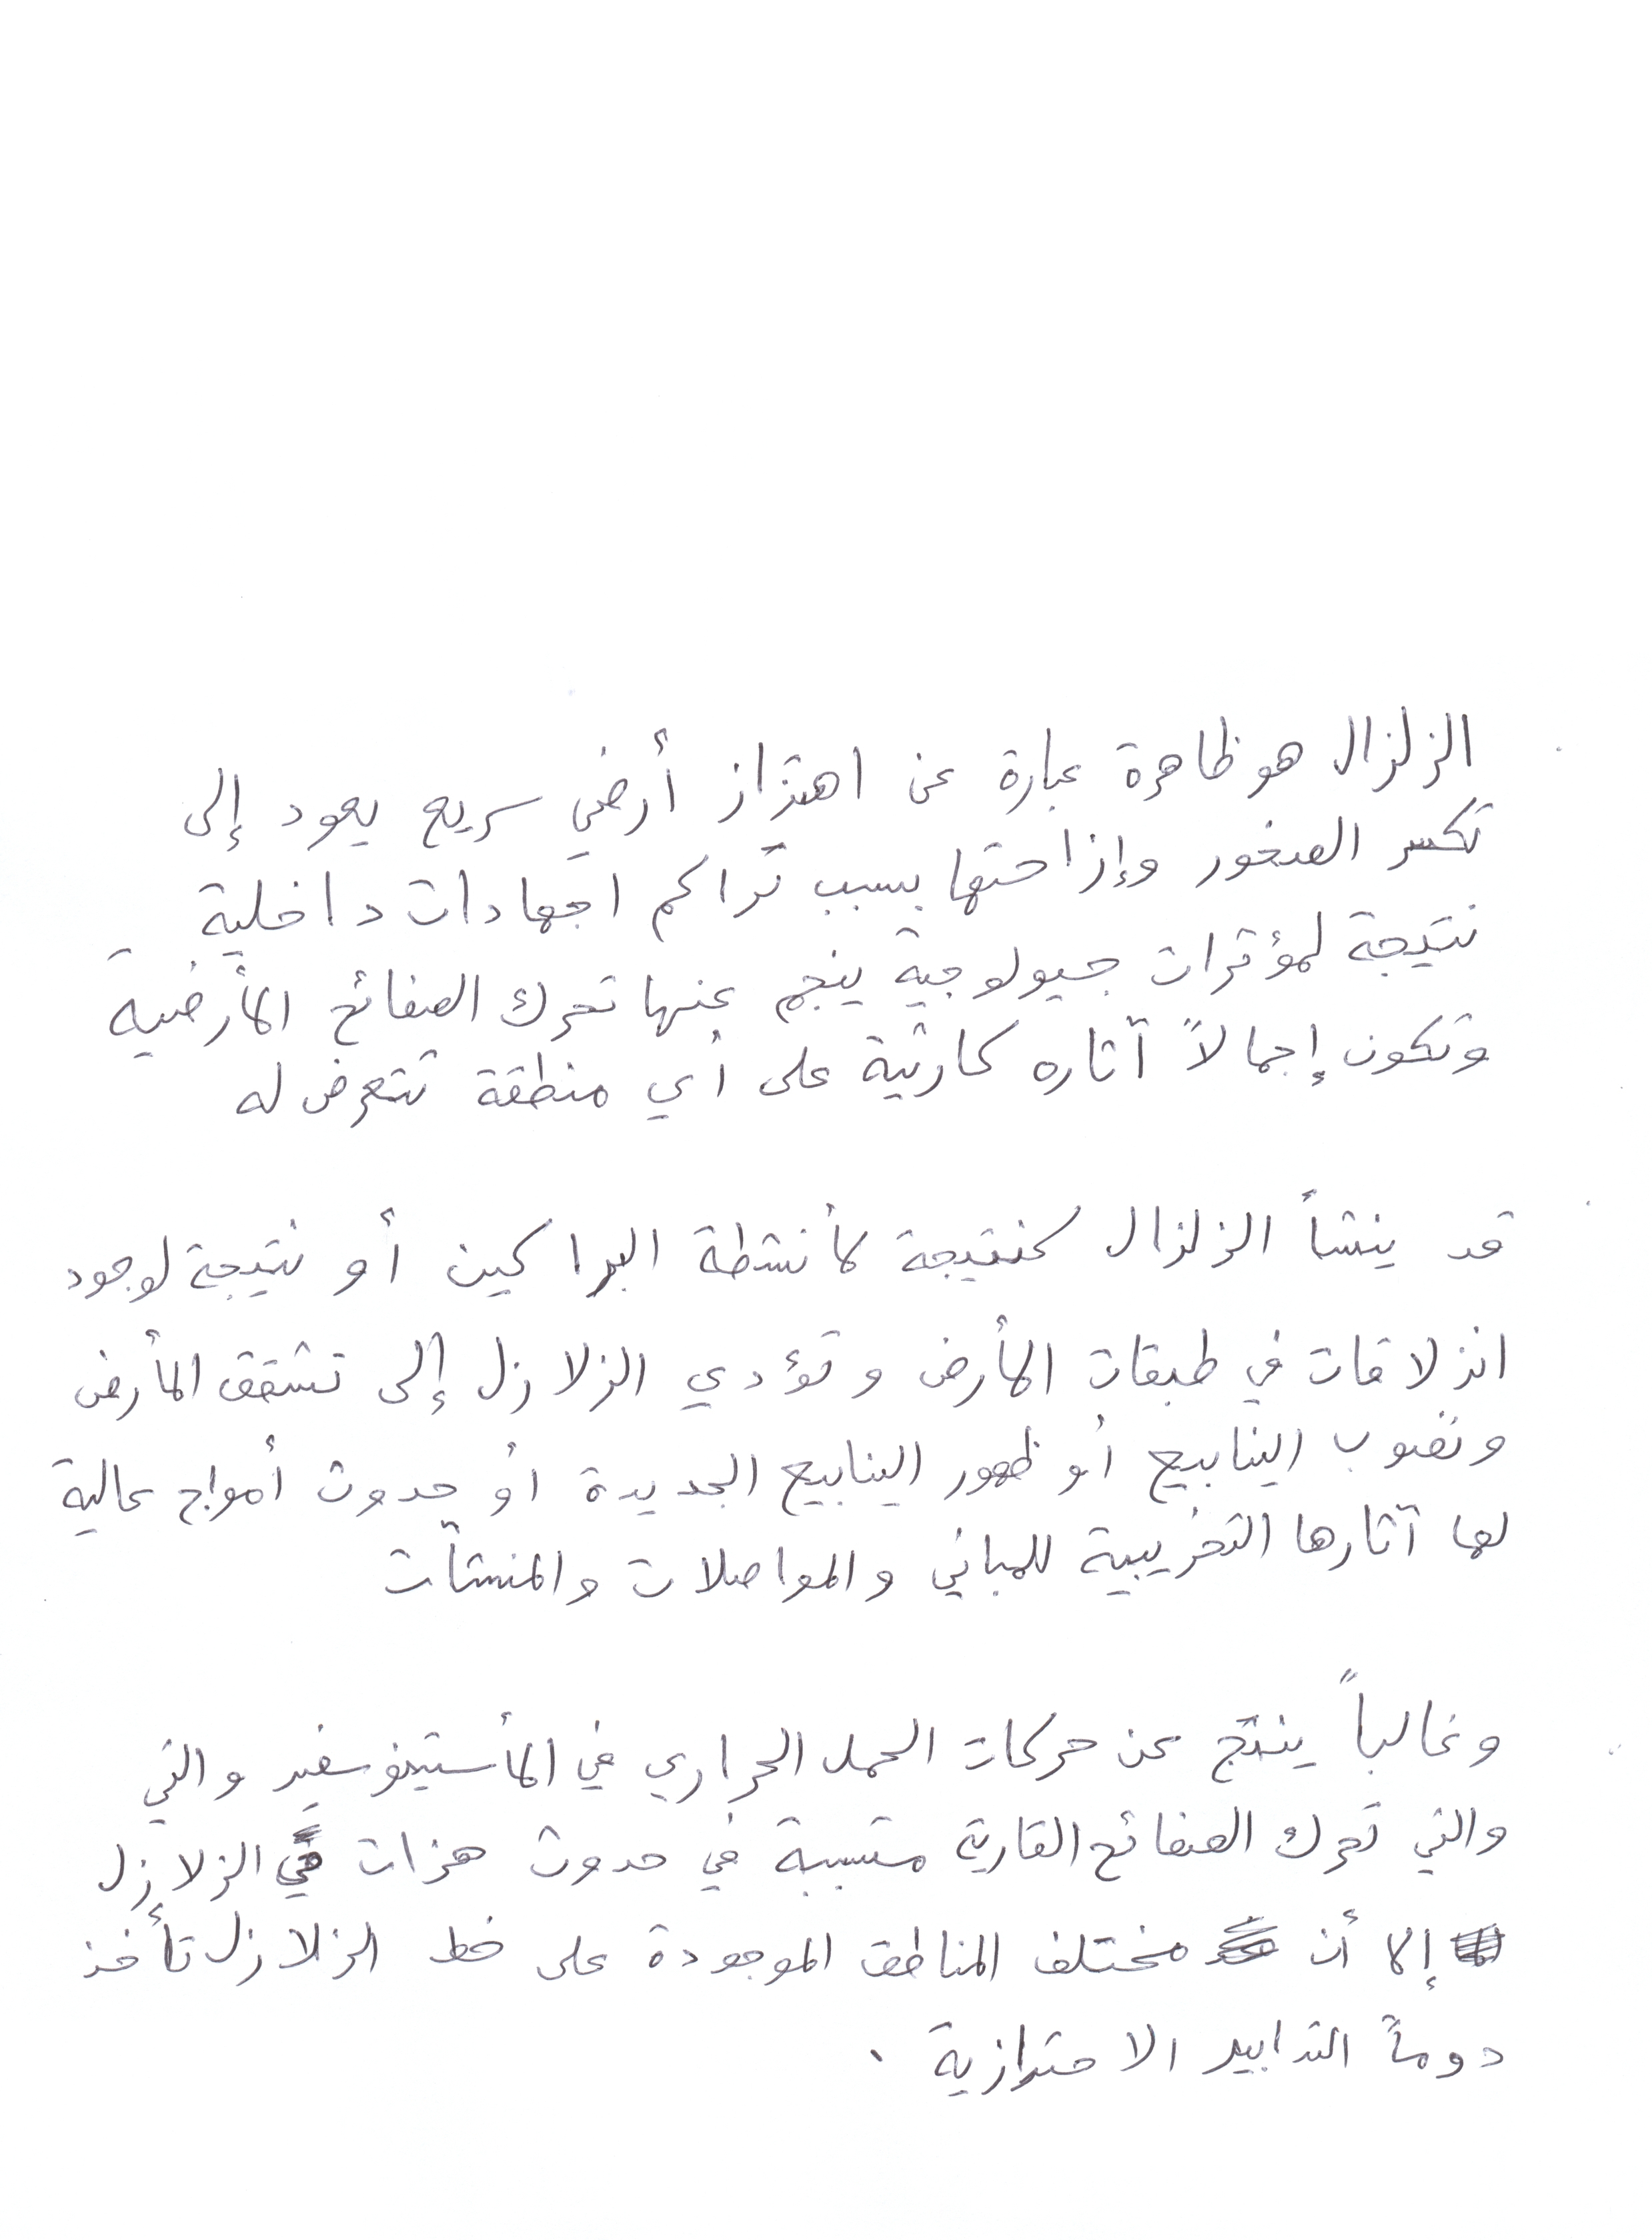 الزلزال هو ظاهرة عبارة عن اهتزاز أرضي سريع يعود إلى
تكسر الصخور وإزاحتها بسبب تراكم اجهادات داخلية
نتيجة لمؤثرات جيولوجية ينجم عنها تحرك الصفائح الأرضية
وتكون إجمالاً آثاره كارثية على أي منطقة تتعرض له
قد ينشأ الزلزال كنتيجة لأنشطة البراكين أو نتيجة لوجود
انزلاقات في طبقات الأرض وتؤدي الزلازل إلى تشقق الأرض
ونضوب الينابيع أو ظهور الينابيع الجديدة أو حدوث أمواج عالية
لها آثارها التخريبية للمباني والمواصلات والمنشآت
وغالباً ينتج عن حركات الحمل الحراري في الأستينوسفير والتي
والتي تحرك الصفائح القارية متسببة في حدوث هزات في الزلازل
إلا أن مختلف المناطق الموجودة على خط الزلازل تأخذ
دوماً التدابير الاحترازية .